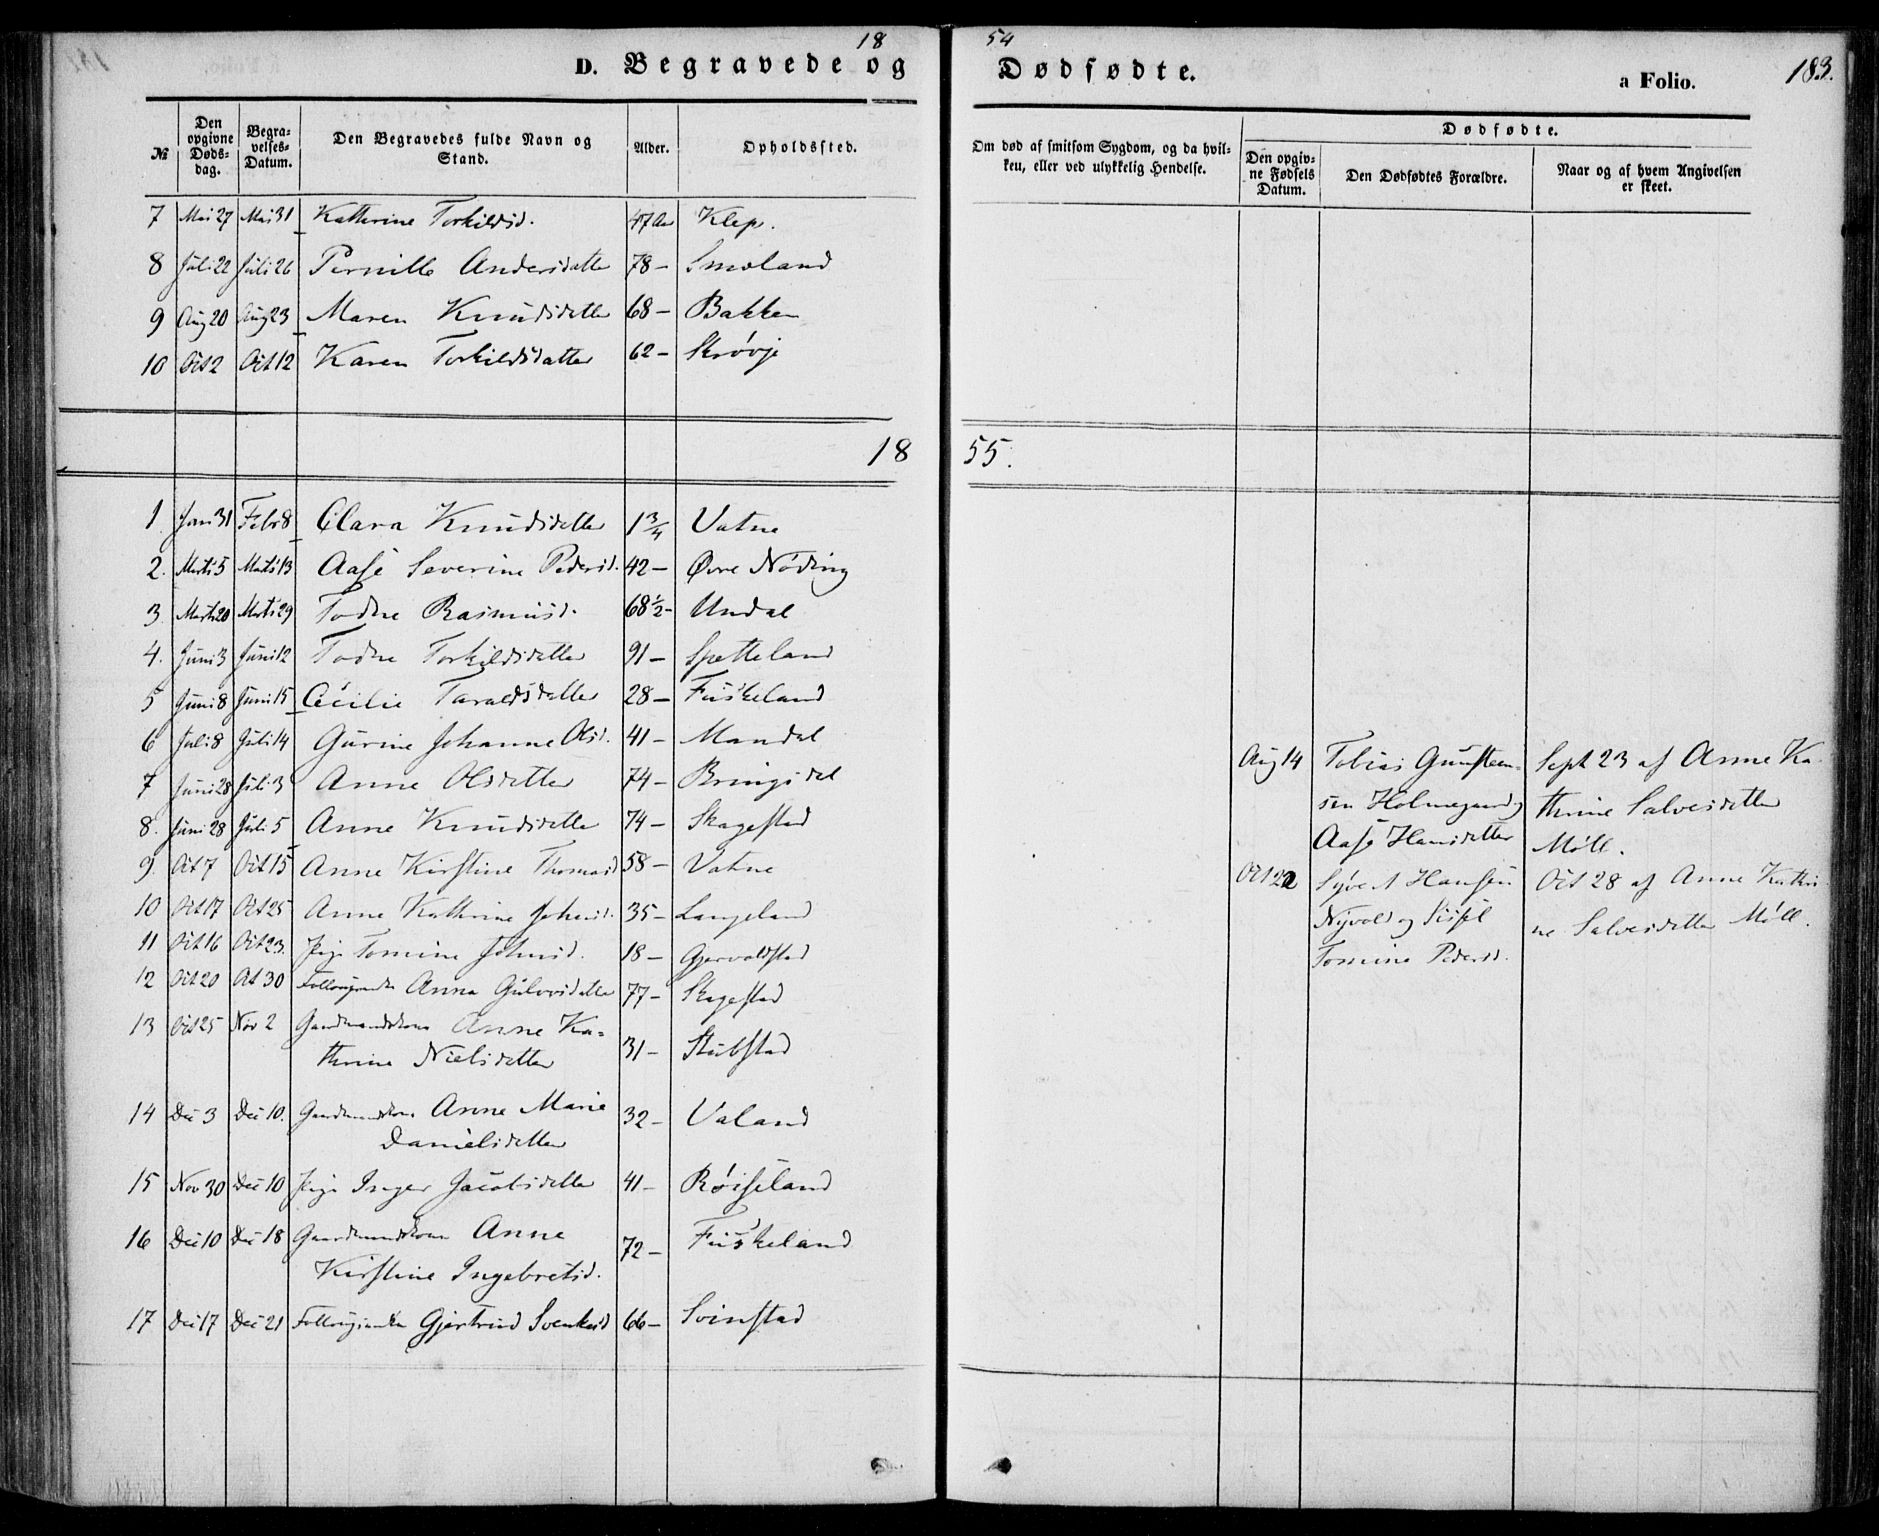 18 54
D. Begravede og Dødfødte.
a Folio. 183.
№ Den opgivne Døds-dag. Begra-velses-Datum. Den Begravedes fulde Navn og Stand. Alder. Opholdssted.
Om død af smitsom Sygdom, og da hvil-ken, eller ved ulykkelig Hendelse.
Dødfødte.
Den opgiv-ne Fødsels Datum. Den Dødfødtes Forældre. Naar og af hvem Angivelsen er skeet.
7 Mai 27 Mai 31 Kathrine Torkildsd. 47 Aar Klep.
8 Juli 22 Juli 26 Pernille Andersdatter 78 – Smoland
9 Aug 20 Aug 23 Maren Knudsdatter 68 – Bakken
10 Oct 2 Oct 12 Karen Torkildsdatter 62 – Skrøvje
18 55.
1 Jan 31 Febr 8 Clara Knudsdatter 1 3/4 Vatne
2. Marts 5 Marts 13 Aase Severine Pedersd. 42 – Øvre Nøding
3 Marts 20 Marts 29 Todne Rasmusd. 68 1/2 – Undal
4. Juni 3 Juni 12 Todne Torkildsdatter 91 – Spetteland
5 Juni 8 Juni 15 Cecilie Taraldsdatter 28 – Fuskeland
6 Juli 8 Juli 14 Gurine Johanne Olsd. 41 – Mandal
7 Juni 28 Juli 3 Anne Olsdatter 74 – Bringsdal
8. Juni 28 Juli 5 Anne Knudsdatter 74 – Skagestad
9. Oct 7 Oct 15 Anne Kirstine Thomasd 58 – Vatne
10 Oct 17 Oct 25 Anne Kathrine Johansd. 35 – Langeland
11 Oct 16 Oct 23. Pige Tomine Johnsd. 18 – Gjervoldstad
12 Oct 20 Oct 30 Anna Gulovsdatter 77 – Skagestad
13 Oct 25 Nov 2 Gaardmandskone Anne Ka-
thrine Nielsdatter 31 – Stubstad
14 Dec 3 Dec 10. Gaardmandskone Anne Marie
Danielsdatter 32 – Valand
15 Nov 30 Dec 10 Pige Inger Jacobsdatter 41 – Røiseland
16 Dec 10 Dec 18 Gaardmandskone Anne
Kirstine Ingebretsd. 72 – Fuskeland
17 Dec 17 Dec 21 Gjertrud Svenkesd 66 – Svinstad
Aug 14 Tobias Gunsteen- Sept 23 af Anne Ka-
sen Holmegaard og thrine Salvesdatter
Aase Hansdatter Møll.
Oct 22 Syvert Hansen Oct 28 af Anne Kathri-
Nyvold og Sissel ne Salvesdatter Møll.
Tomine Pedersd.